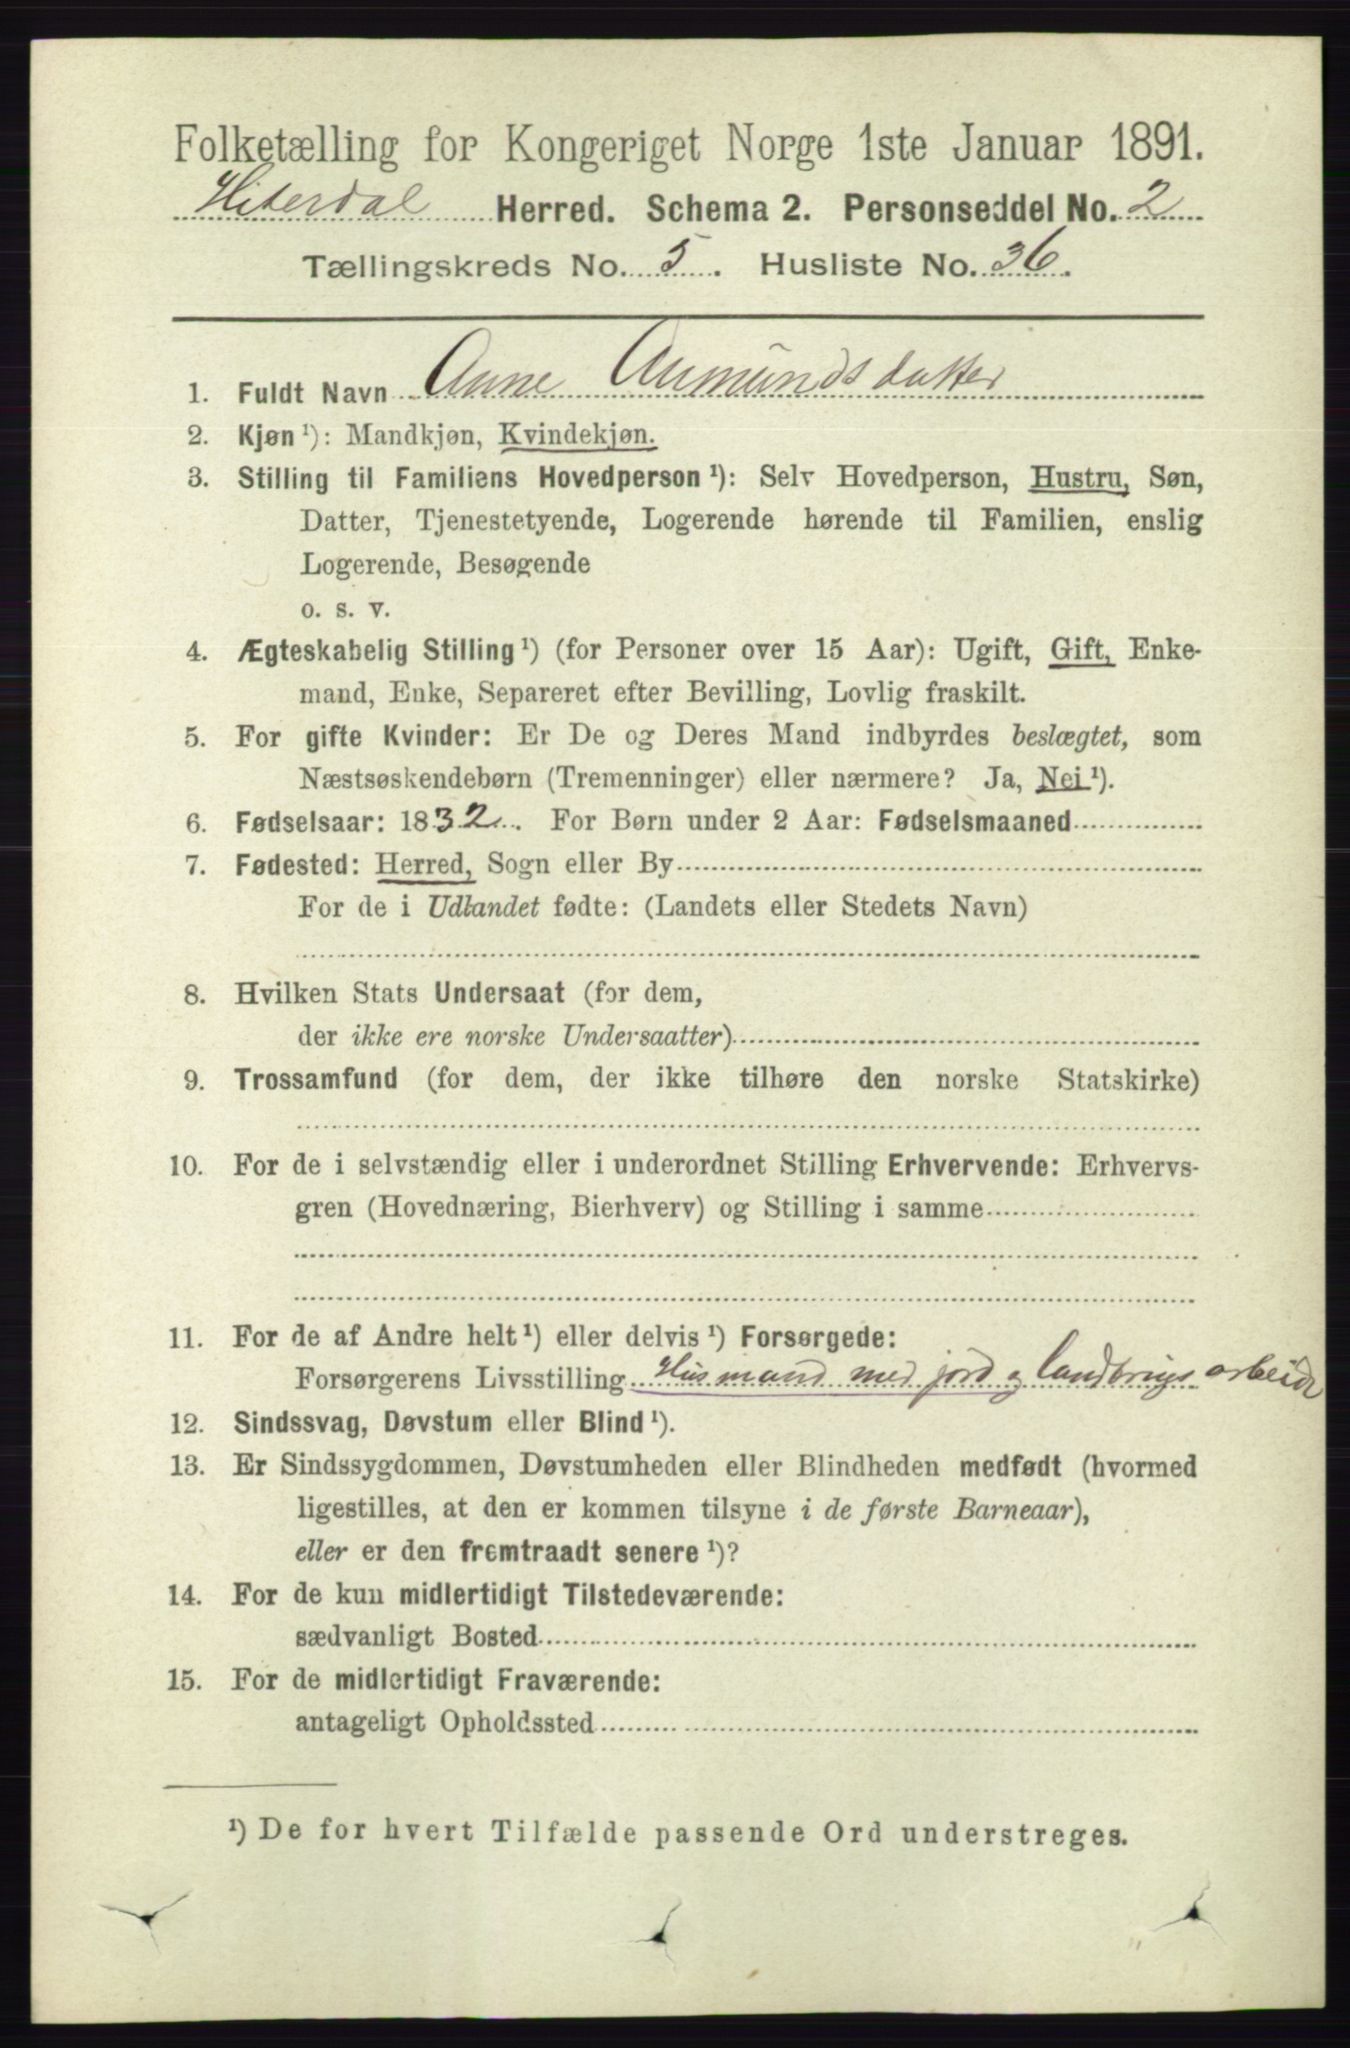 Folketælling for Kongeriget Norge 1ste Januar 1891.
Hiterdal Herred. Schema 2. Personseddel No. 2
Tællingskreds No. 5. Husliste No. 36.
1. Fuldt Navn Anne Aumundsdatter
2. Kjøn ¹): Mandkjøn, Kvindekjøn.
3. Stilling til Familiens Hovedperson ¹): Selv Hovedperson, Hustru, Søn,
Datter, Tjenestetyende, Logerende hørende til Familien, enslig
Logerende, Besøgende
o. s. v.
4. Ægteskabelig Stilling ¹) (for Personer over 15 Aar): Ugift, Gift, Enke-
mand, Enke, Separeret efter Bevilling, Lovlig fraskilt.
5. For gifte Kvinder: Er De og Deres Mand indbyrdes beslægtet, som
Næstsøskendebørn (Tremenninger) eller nærmere? Ja, Nei ¹).
6. Fødselsaar: 1832. For Børn under 2 Aar: Fødselsmaaned
7. Fødested: Herred, Sogn eller By
For de i Udlandet fødte: (Landets eller Stedets Navn)
8. Hvilken Stats Undersaat (for dem,
der ikke ere norske Undersaatter)
9. Trossamfund (for dem, der ikke tilhøre den norske Statskirke)
10. For de i selvstændig eller i underordnet Stilling Erhvervende: Erhvervs-
gren (Hovednæring, Bierhverv) og Stilling i samme
11. For de af Andre helt ¹) eller delvis ¹) Forsørgede:
Forsørgerens Livsstilling Husmand med jord og landbrugsarbeide
12. Sindssvag, Døvstum eller Blind ¹).
13. Er Sindssygdommen, Døvstumheden eller Blindheden medfødt (hvormed
ligestilles, at den er kommen tilsyne i de første Barneaar),
eller er den fremtraadt senere ¹)?
14. For de kun midlertidigt Tilstedeværende:
sædvanligt Bosted
15. For de midlertidigt Fraværende:
antageligt Opholdssted
¹) De for hvert Tilfælde passende Ord understreges.